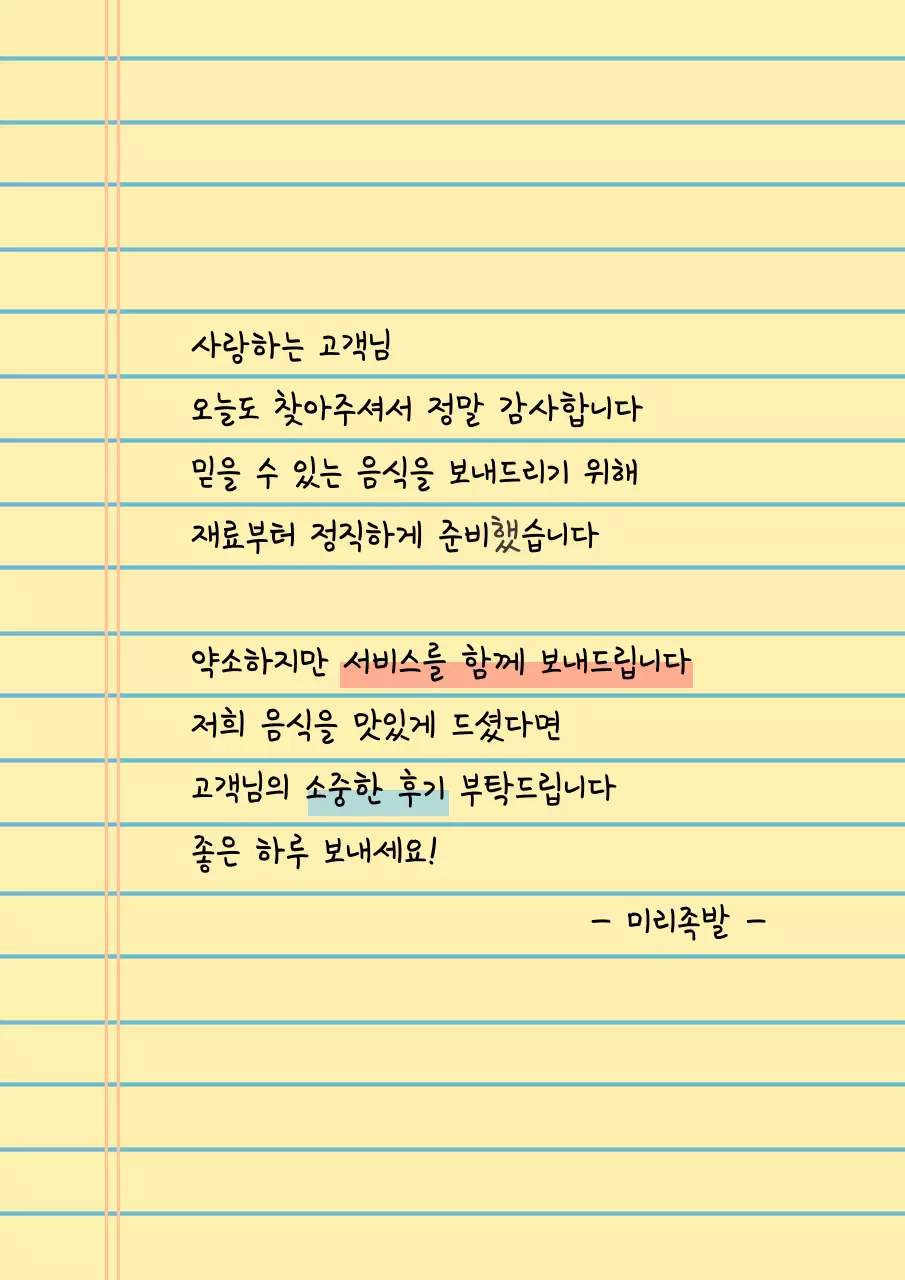 사랑하는 고객님
오늘도 찾아주셔서 정말 감사합니다
믿을 수 있는 음식을 보내드리기 위해
재료부터 정직하게 준비했습니다
약소하지만 서비스를 함께 보내드립니다
저희 음식을 맛있게 드셨다면
고객님의 소중한 후기 부탁드립니다
좋은 하루 보내세요!
- 미리족발 -